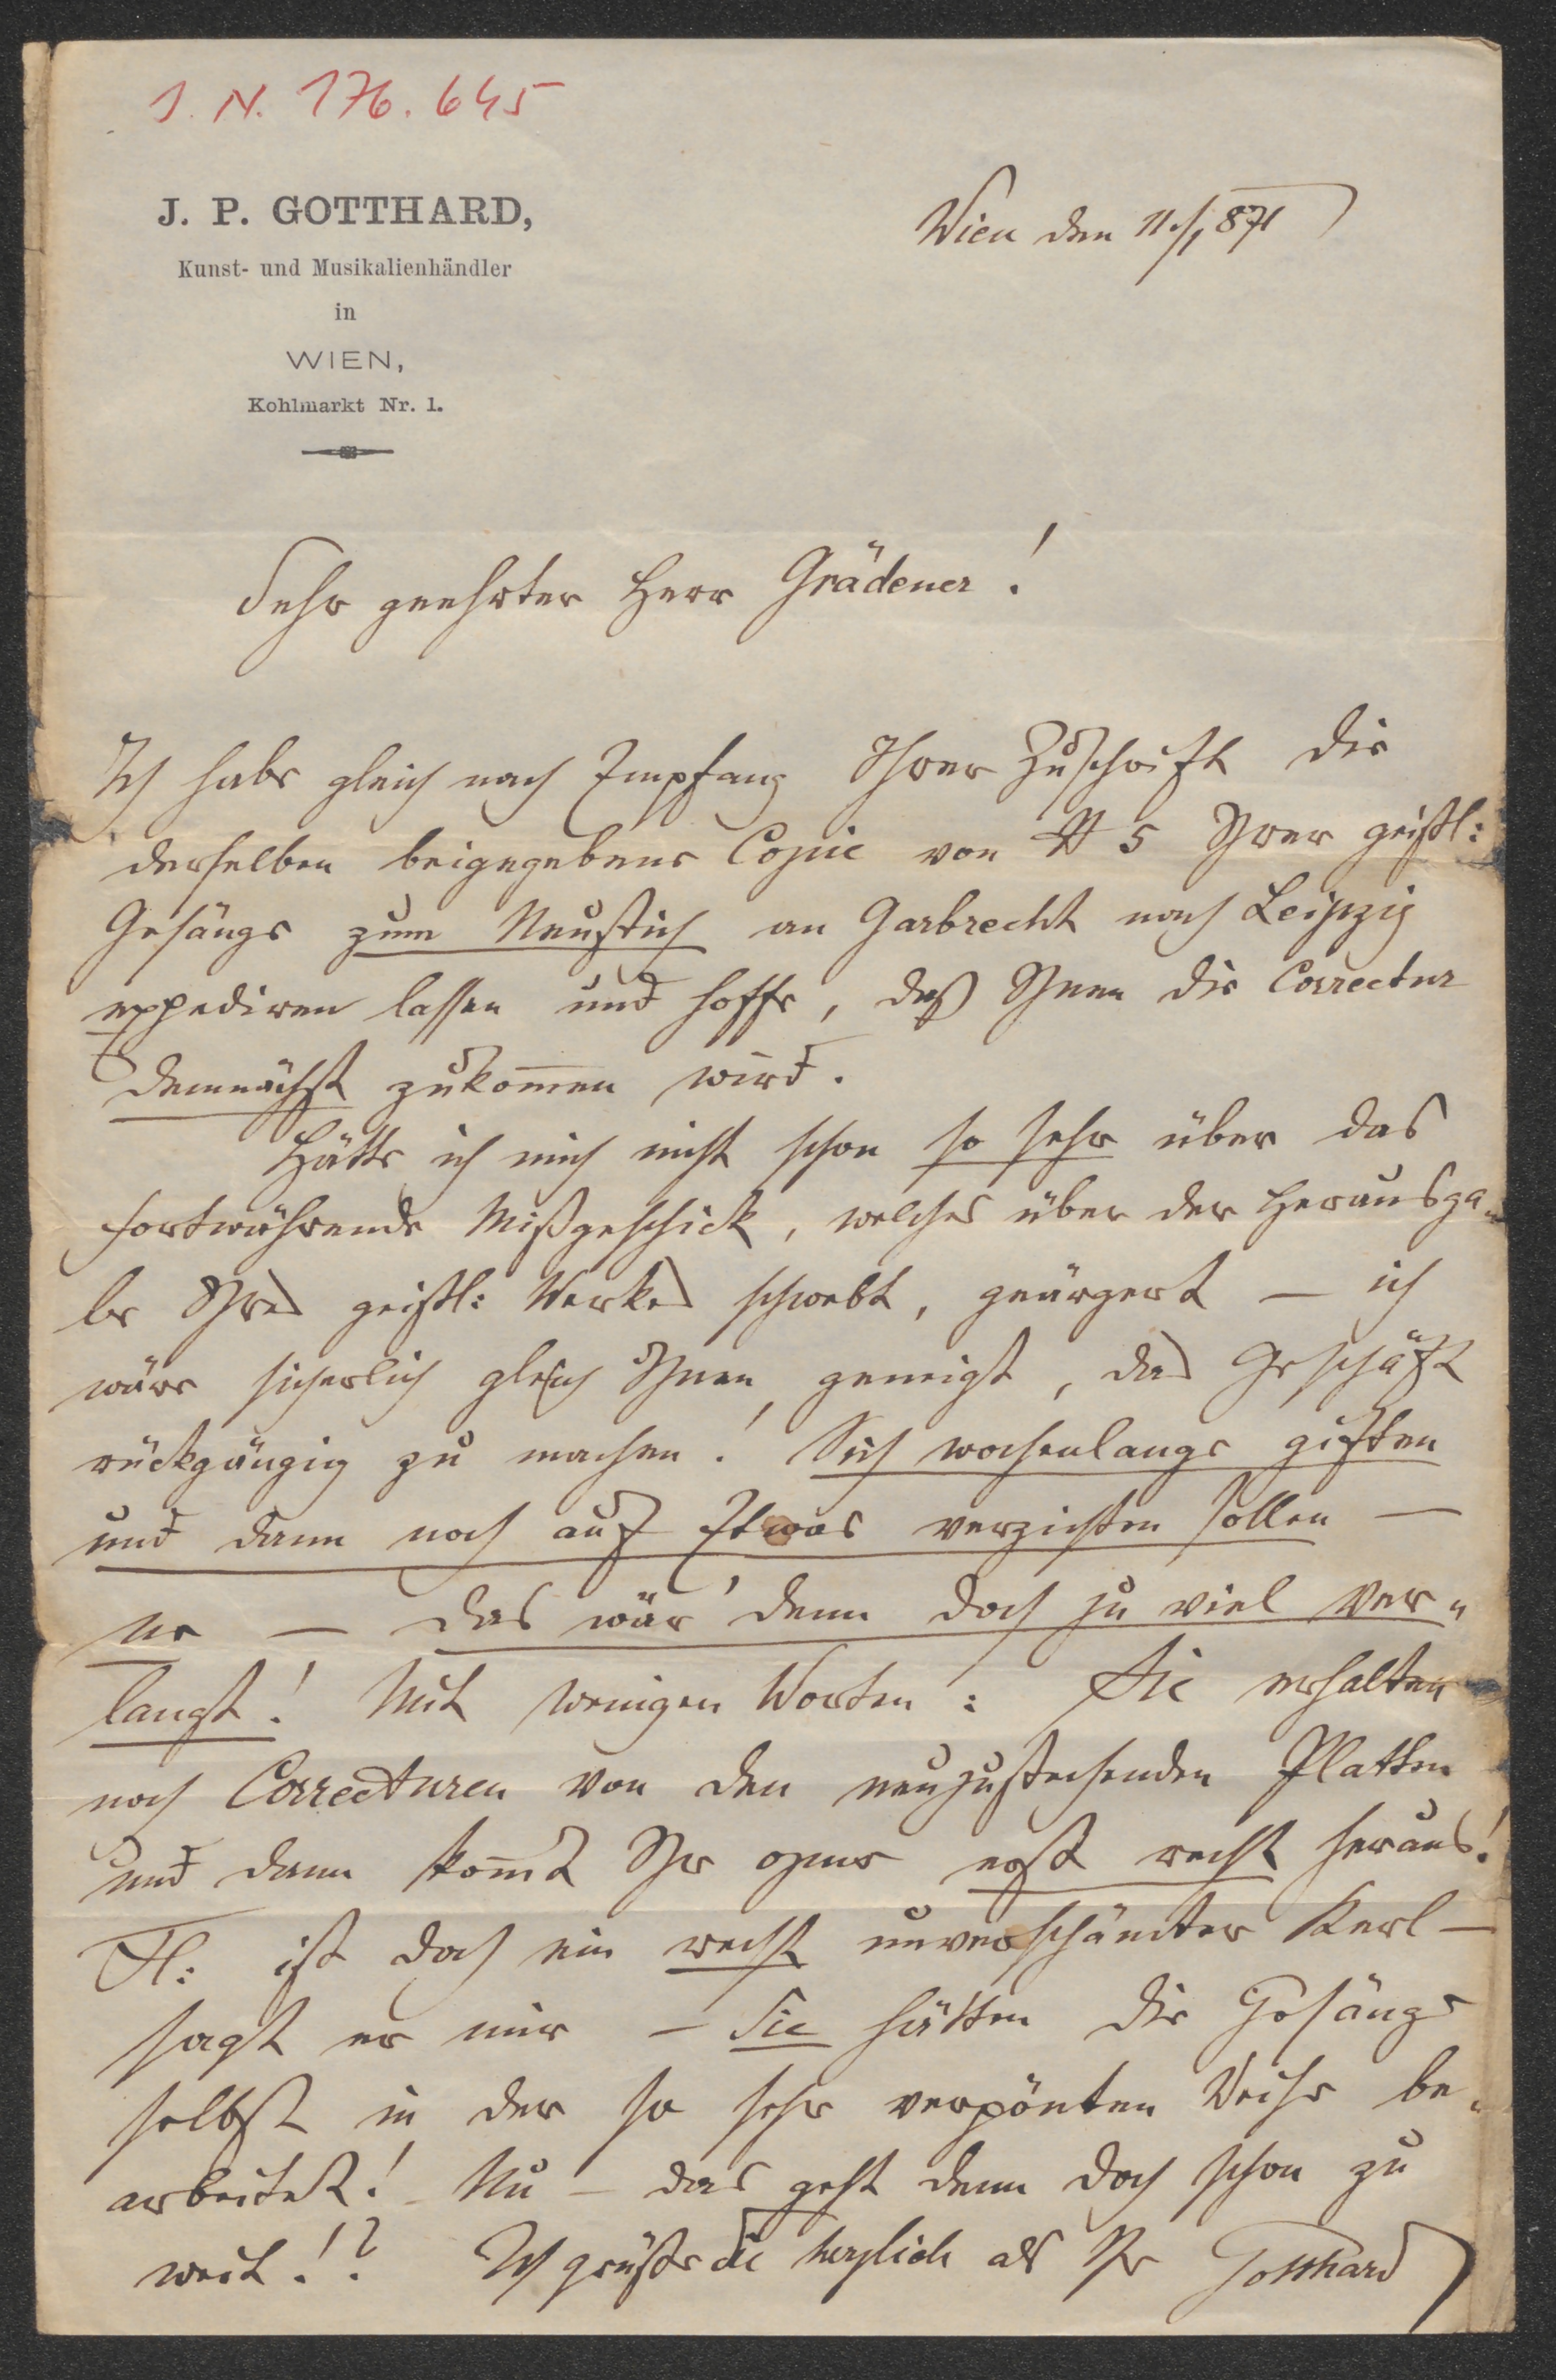 I. N. 176.645
J. P. GOTTHARD,
Kunst- und Musikalienhändler
in
WIEN,
Kohlmarkt Nr. 1.
Wien den 11./1 871
Sehr geehrter Herr Grädener!
Ich habe gleich nach Empfang Ihrer Zuschrift die
derselben beigegebene Copie von № 5 Ihrer geistl:
Gesänge zum Neustich an Garbrecht nach Leipzig
expediren lassen und hoffe, daß Ihnen die Correctur
demnächst zukom̅en wird.
Hätte ich mich nicht schon so sehr über das
fortwährende Mißgeschick, welches über der Herausga-
be Ihres geistl: Werkes schwebt, geärgert — ich
wäre sicherlich gleich Ihnen, geneigt, das Geschäft
rückgängig zu machen! Sich wochenlange giften
und dann noch auf Etwas verzichten sollen —
ne — das wär' denn doch zu viel ver„
langt! Mit wenigen Worten: Sie erhalten
noch Correcturen von den neuzustechenden Platten
und dann kom̅t Ihr opus erst recht heraus!
Fl: ist doch ein recht unverschämter Kerl —
sagt er mir — Sie hätten die Gesänge
selbst in der so sehr verpönten Weise be„
arbeitet! Nu — das geht denn doch schon zu
weit!? Ich grüße Sie herzlich als Ihr Gotthard